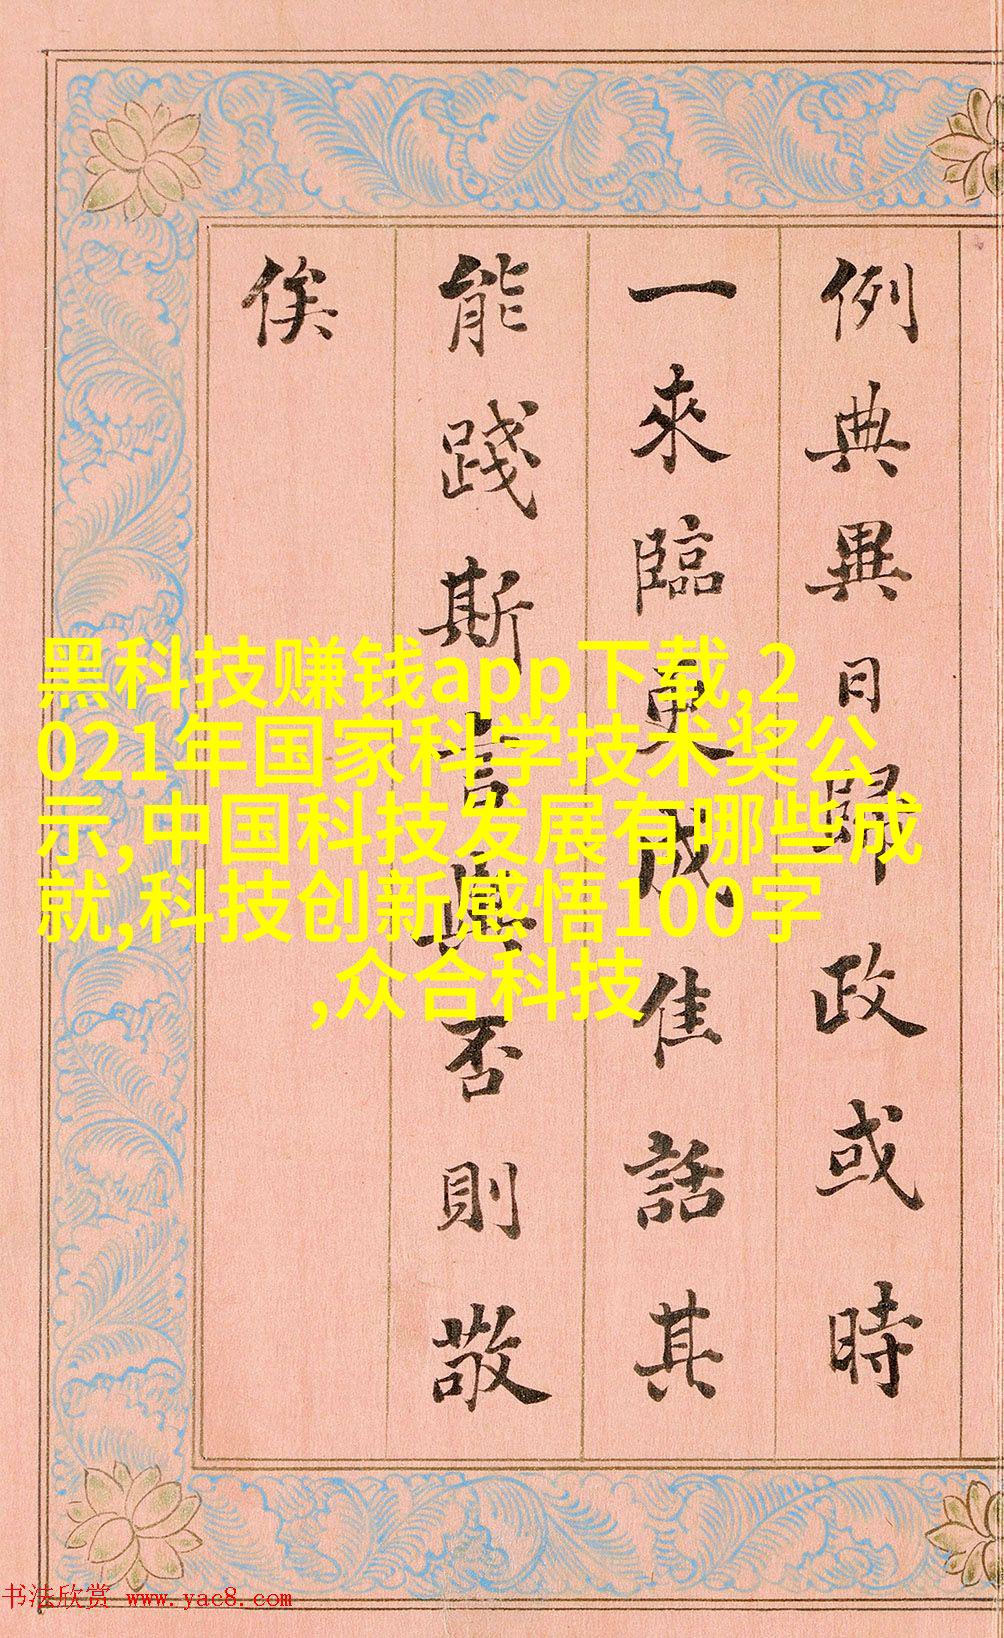 例典異日歸政或時
一來臨更成佳話其
能踐斯言與否則敬
俟
黑科技赚钱app下载,2
021年国家科学技术奖公
示,中国科技发展有哪些成
就,科技创新感悟100字
,众合科技
书法欣赏 www.yac8.com